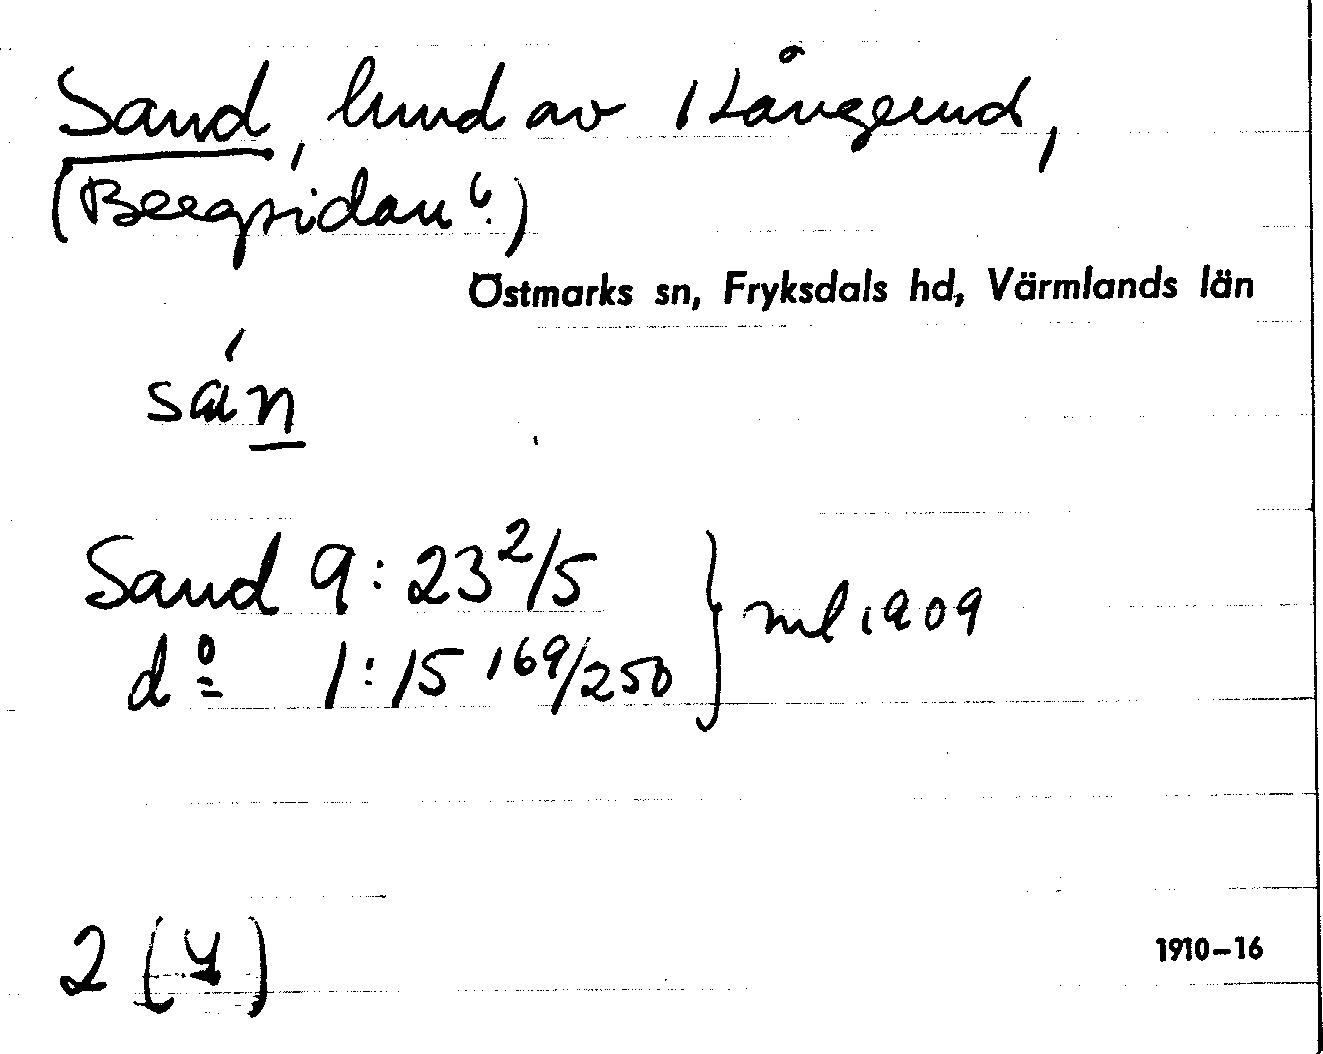 Sand, hmd av Långerud,
(Bergsidan?)
Östmarks sn, Fryksdals hd, Värmlands län
sán
Sand 9:23 2/5
dº 1:15 169/250 } ml 1909
2 (4)
1910–16